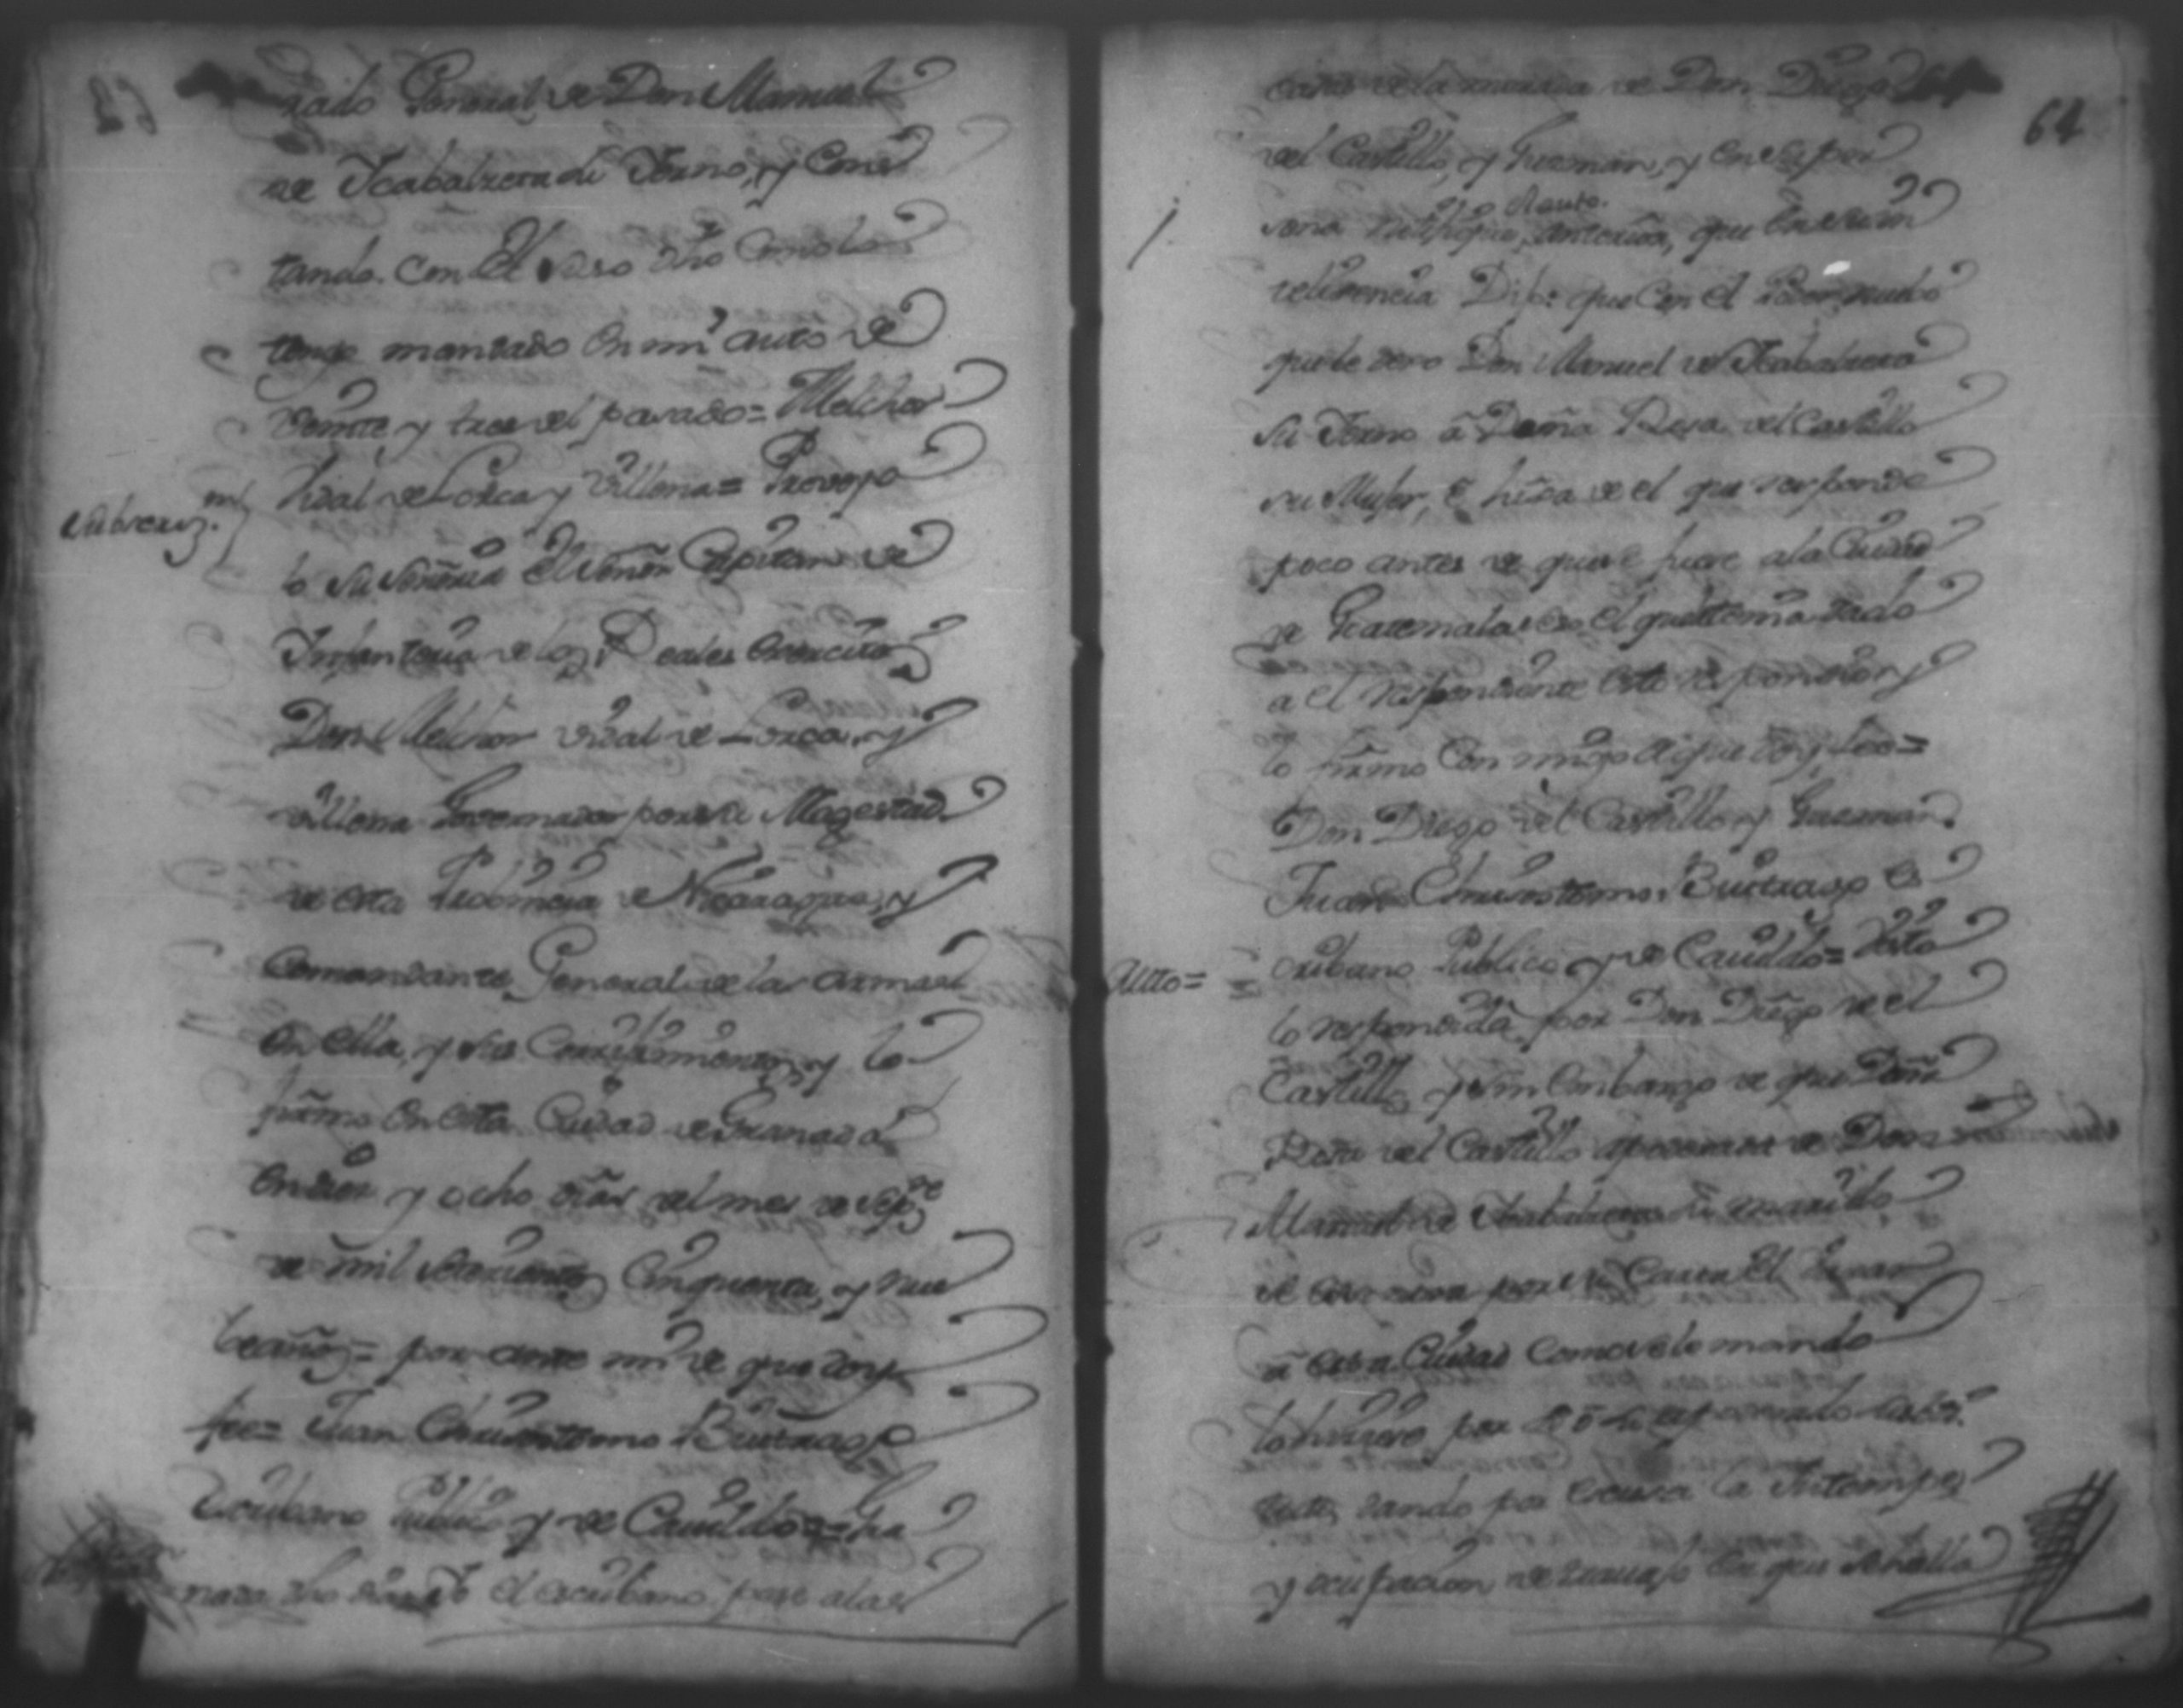 rado General de Don Manuel
de Icabalzeta su Yerno, y Cons
tando. Con el suso dho como lo
tengo mandado en mi auto de
veinte y tres del pasado = Melchor
Vidal de Lorca y Villena = Proveyo
lo su señoria el señor Capitan de
Infanteria de los Reales exercitos
Don Melchor Vidal de Lorca, y
Villena Governador por su Magestad
de esta Provincia de Nicaragua, y
Comandante General de las armas
en ella, y sus Corregimientos, y lo
firmo en esta Ciudad de Granada
en dies y ocho dias del mes de
de mil setecientos Cinquenta, y nue
be años = por ante mi de que doy
fee = Juan Chrisostomo Buitrago
Escribano Publico y de Cavildo =
dho dia Yo el escribano pase a la
64
casa de la morada de Don Diego
del Castillo, y Guzman, y en su per
sona el auto. anterior, que en su
Dijo: que con el Poder
que le dexo Don Manuel de Icabalzeta
su Yerno a Doña Rosa del Castillo
su Muger, e hija de el que responde
poco antes de que se fuere a la Ciudad
de Guatemala el que tenia dado
a el respondiente esto respondio y
lo firmo con migo de que doy fee =
Don Diego del Castillo y Guzman.
Juan Chrisostomo Buitrago Es
Autto =
cribano Publico y de Cavildo = Visto
lo respondido por Don Diego de el
Castillo y sin embargo de que Doña
Rosa del Castillo apoderada de Don
Manuel de Icabalzeta su marido
por su Causa el
a esta Ciudad como se le mando
lo hiziere por
dando por escusa la
y ocupacion de trauajo en que se halla